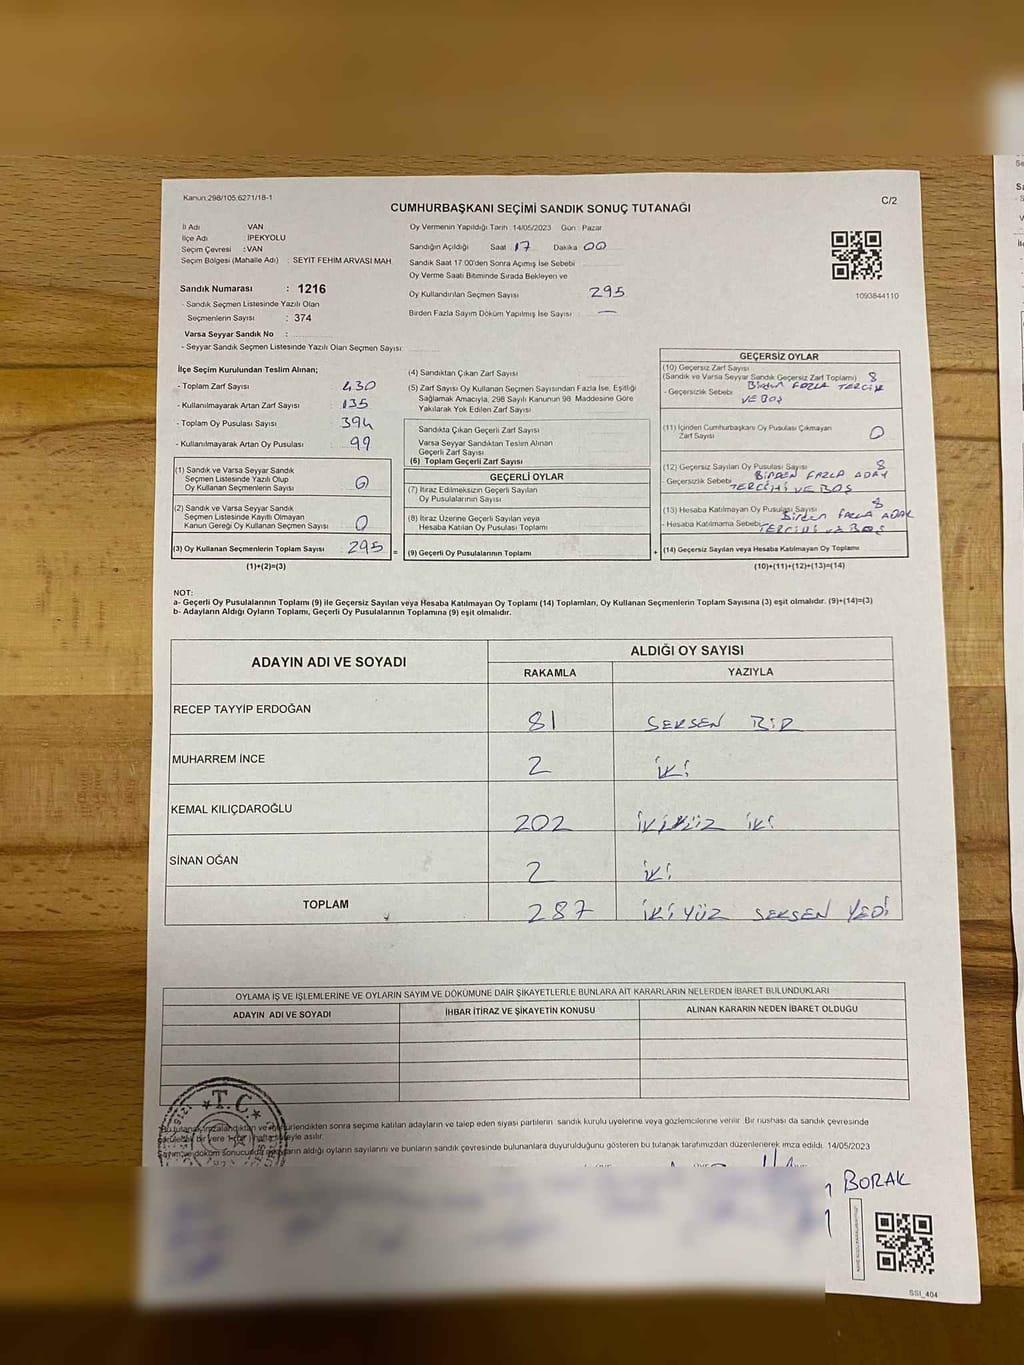 Kanun:298/105.6271/18-1
C/2
CUMHURBAŞKANI SEÇİMİ SANDIK SONUÇ TUTANAĞI
İl Adı : VAN
İlçe Adı : İPEKYOLU
Seçim Çevresi :VAN
Seçim Bölgesi (Mahalle Adı) : SEYİT FEHİM ARVASİ MAH.
Sandık Numarası : 1216
- Sandık Seçmen Listesinde Yazılı Olan
Seçmenlerin Sayısı : 374
Varsa Seyyar Sandık No :
- Seyyar Sandık Seçmen Listesinde Yazılı Olan Seçmen Sayısı:
Oy Vermenin Yapıldığı Tarih 14/05/2023 Gün : Pazar
Sandığın Açıldığı Saat 17 Dakika 00
Sandık Saat 17.00'den Sonra Açılmış İse Sebebi
Oy Verme Saati Bitiminde Sırada Bekleyen ve
Oy Kullandırılan Seçmen Sayısı 295
Birden Fazla Sayım Döküm Yapılmış İse Sayısı —
1093844110
İlçe Seçim Kurulundan Teslim Alınan;
- Toplam Zarf Sayısı 430
- Kullanılmayarak Artan Zarf Sayısı 135
- Toplam Oy Pusulası Sayısı 394
- Kullanılmayarak Artan Oy Pusulası 99
(1) Sandık ve Varsa Seyyar Sandık
Seçmen Listesinde Yazılı Olup
Oy Kullanan Seçmenlerin Sayısı
(2) Sandık ve Varsa Seyyar Sandık
Seçmen Listesinde Kayıtlı Olmayan
Kanun Gereği Oy Kullanan Seçmen Sayısı 0
(3) Oy Kullanan Seçmenlerin Toplam Sayısı 295 =
(1)+(2)=(3)
(4) Sandıktan Çıkan Zarf Sayısı
(5) Zarf Sayısı Oy Kullanan Seçmen Sayısından Fazla İse, Eşitliği
Sağlamak Amacıyla, 298 Sayılı Kanunun 98. Maddesine Göre
Yakılarak Yok Edilen Zarf Sayısı
Sandıkta Çıkan Geçerli Zarf Sayısı
Varsa Seyyar Sandıktan Teslim Alınan
Geçerli Zarf Sayısı
(6) Toplam Geçerli Zarf Sayısı
GEÇERLİ OYLAR
(7) İtiraz Edilmeksizin Geçerli Sayılan
Oy Pusulalarının Sayısı
(8) İtiraz Üzerine Geçerli Sayılan veya
Hesaba Katılan Oy Pusulası Toplamı
(9) Geçerli Oy Pusulalarının Toplamı +
GEÇERSİZ OYLAR
(10) Geçersiz Zarf Sayısı
(Sandık ve Varsa Seyyar Sandık Geçersiz Zarf Toplamı) 8
- Geçersizlik Sebebi Birden FAZLA TERCİH
VE BOŞ
(11) İçinden Cumhurbaşkanı Oy Pusulası Çıkmayan
Zarf Sayısı 0
(12) Geçersiz Sayılan Oy Pusulası Sayısı 8
- Geçersizlik Sebebi BİRDEN FAZLA ADAY
TERCİHİ VE BOŞ
(13) Hesaba Katılmayan Oy Pusulası Sayısı 8
- Hesaba Katılmama Sebebi Birden FAZLA ADAY
TERCİHİ VE BOŞ
(14) Geçersiz Sayılan veya Hesaba Katılmayan Oy Toplamı
(10)+(11)+(12)+(13)=(14)
NOT:
a- Geçerli Oy Pusulalarının Toplamı (9) ile Geçersiz Sayılan veya Hesaba Katılmayan Oy Toplamı (14) Toplamları, Oy Kullanan Seçmenlerin Toplam Sayısına (3) eşit olmalıdır. (9)+(14)=(3)
b- Adayların Aldığı Oyların Toplamı, Geçerli Oy Pusulalarının Toplamına (9) eşit olmalıdır.
ADAYIN ADI VE SOYADI
ALDIĞI OY SAYISI
RAKAMLA YAZIYLA
RECEP TAYYİP ERDOĞAN 81 SEKSEN BİR
MUHARREM İNCE 2 İKİ
KEMAL KILIÇDAROĞLU 202 İKİYÜZ İKİ
SİNAN OĞAN 2 İKİ
TOPLAM 287 İKİYÜZ SEKSEN YEDİ
OYLAMA İŞ VE İŞLEMLERİNE VE OYLARIN SAYIM VE DÖKÜMÜNE DAİR ŞİKAYETLERLE BUNLARA AİT KARARLARIN NELERDEN İBARET BULUNDUKLARI
ADAYIN ADI VE SOYADI İHBAR İTİRAZ VE ŞİKAYETİN KONUSU ALINAN KARARIN NEDEN İBARET OLDUĞU
T.C.
sonra seçime katılan adayların ve talep eden siyasi partilerin sandık kurulu üyelerine veya gözlemcilerine verilir. Bir nüshası da sandık çevresinde
aldığı oyların sayılarını ve bunların sandık çevresinde bulunanlara duyurulduğunu gösteren bu tutanak tarafımızdan düzenlenerek imza edildi. 14/05/2023
BORAK
SSI_404